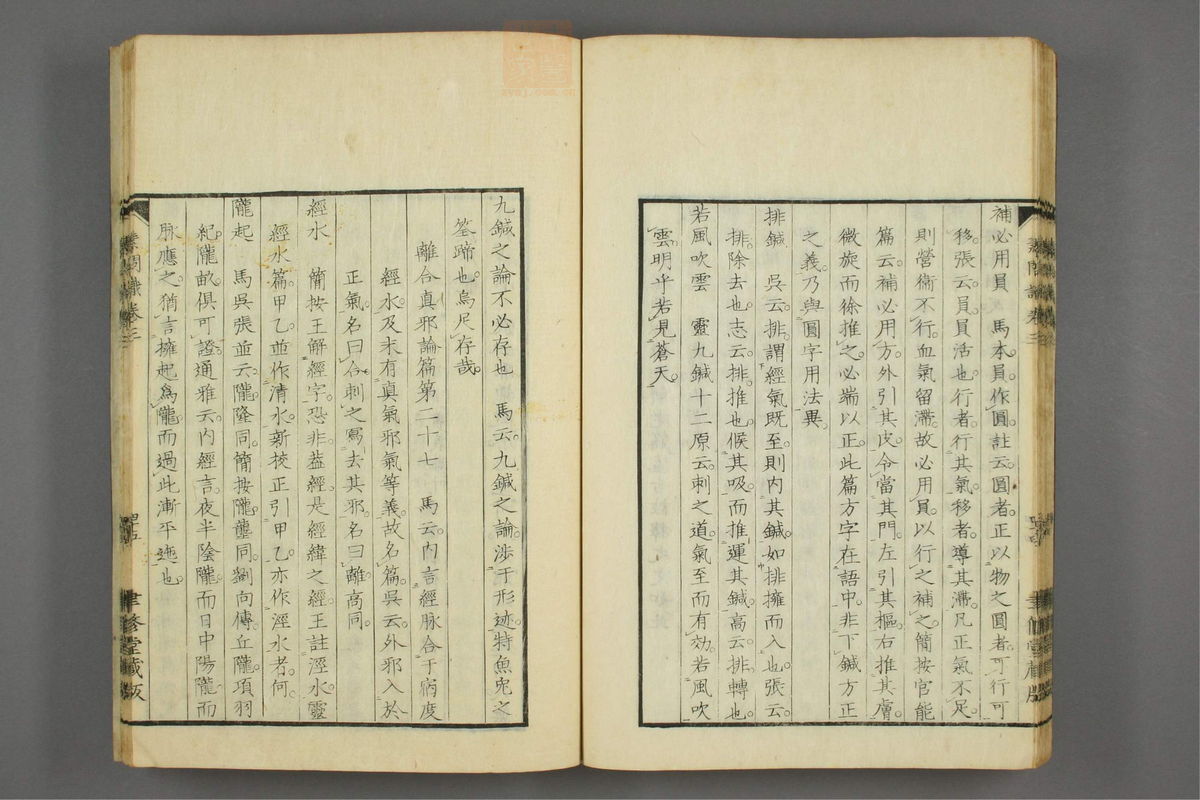 補必用員　馬本員作圓註云圓者正以物之圓者可行可
移張云員員活也行者行其氣移者導其滯凡正氣不足
則營衛不行血氣留滯故必用員以行之補之簡按官能
篇云補必用方外引其皮令當其門左引其樞右推其膚
微旋而徐推之必端以正此篇方字在語中非下鍼方正
之義乃與圓字用法異
排鍼　吳云排謂經氣既至則內其鍼如排擁而入也張云
排除去也志云排推也候其吸而推運其鍼高云排轉也
若風吹雲　靈九鍼十二原云刺之道氣至而有効若風吹
雲明乎若見蒼天
九鍼之論不必存也　馬云九鍼之論涉于形迹特魚兔之
筌蹄也烏足存哉
離合真邪論篇第二十七　馬云內言經脉合于病度
經水及末有真氣邪氣等義故名篇吳云外邪入於
正氣名曰合刺之寫去其邪名曰離高同
經水　簡按王解經字恐非葢經是經緯之經王註涇水靈
經水篇甲乙並作清水新挍正引甲乙亦作涇水者何
隴起　馬吳張並云隴隆同簡按隴壟同劉向傳丘隴項羽
紀隴畝俱可證通雅云內經言夜半陰隴而日中陽隴而
脉應之猶言擁起為隴而過此漸平迤也
素問識卷三
聿修堂藏版